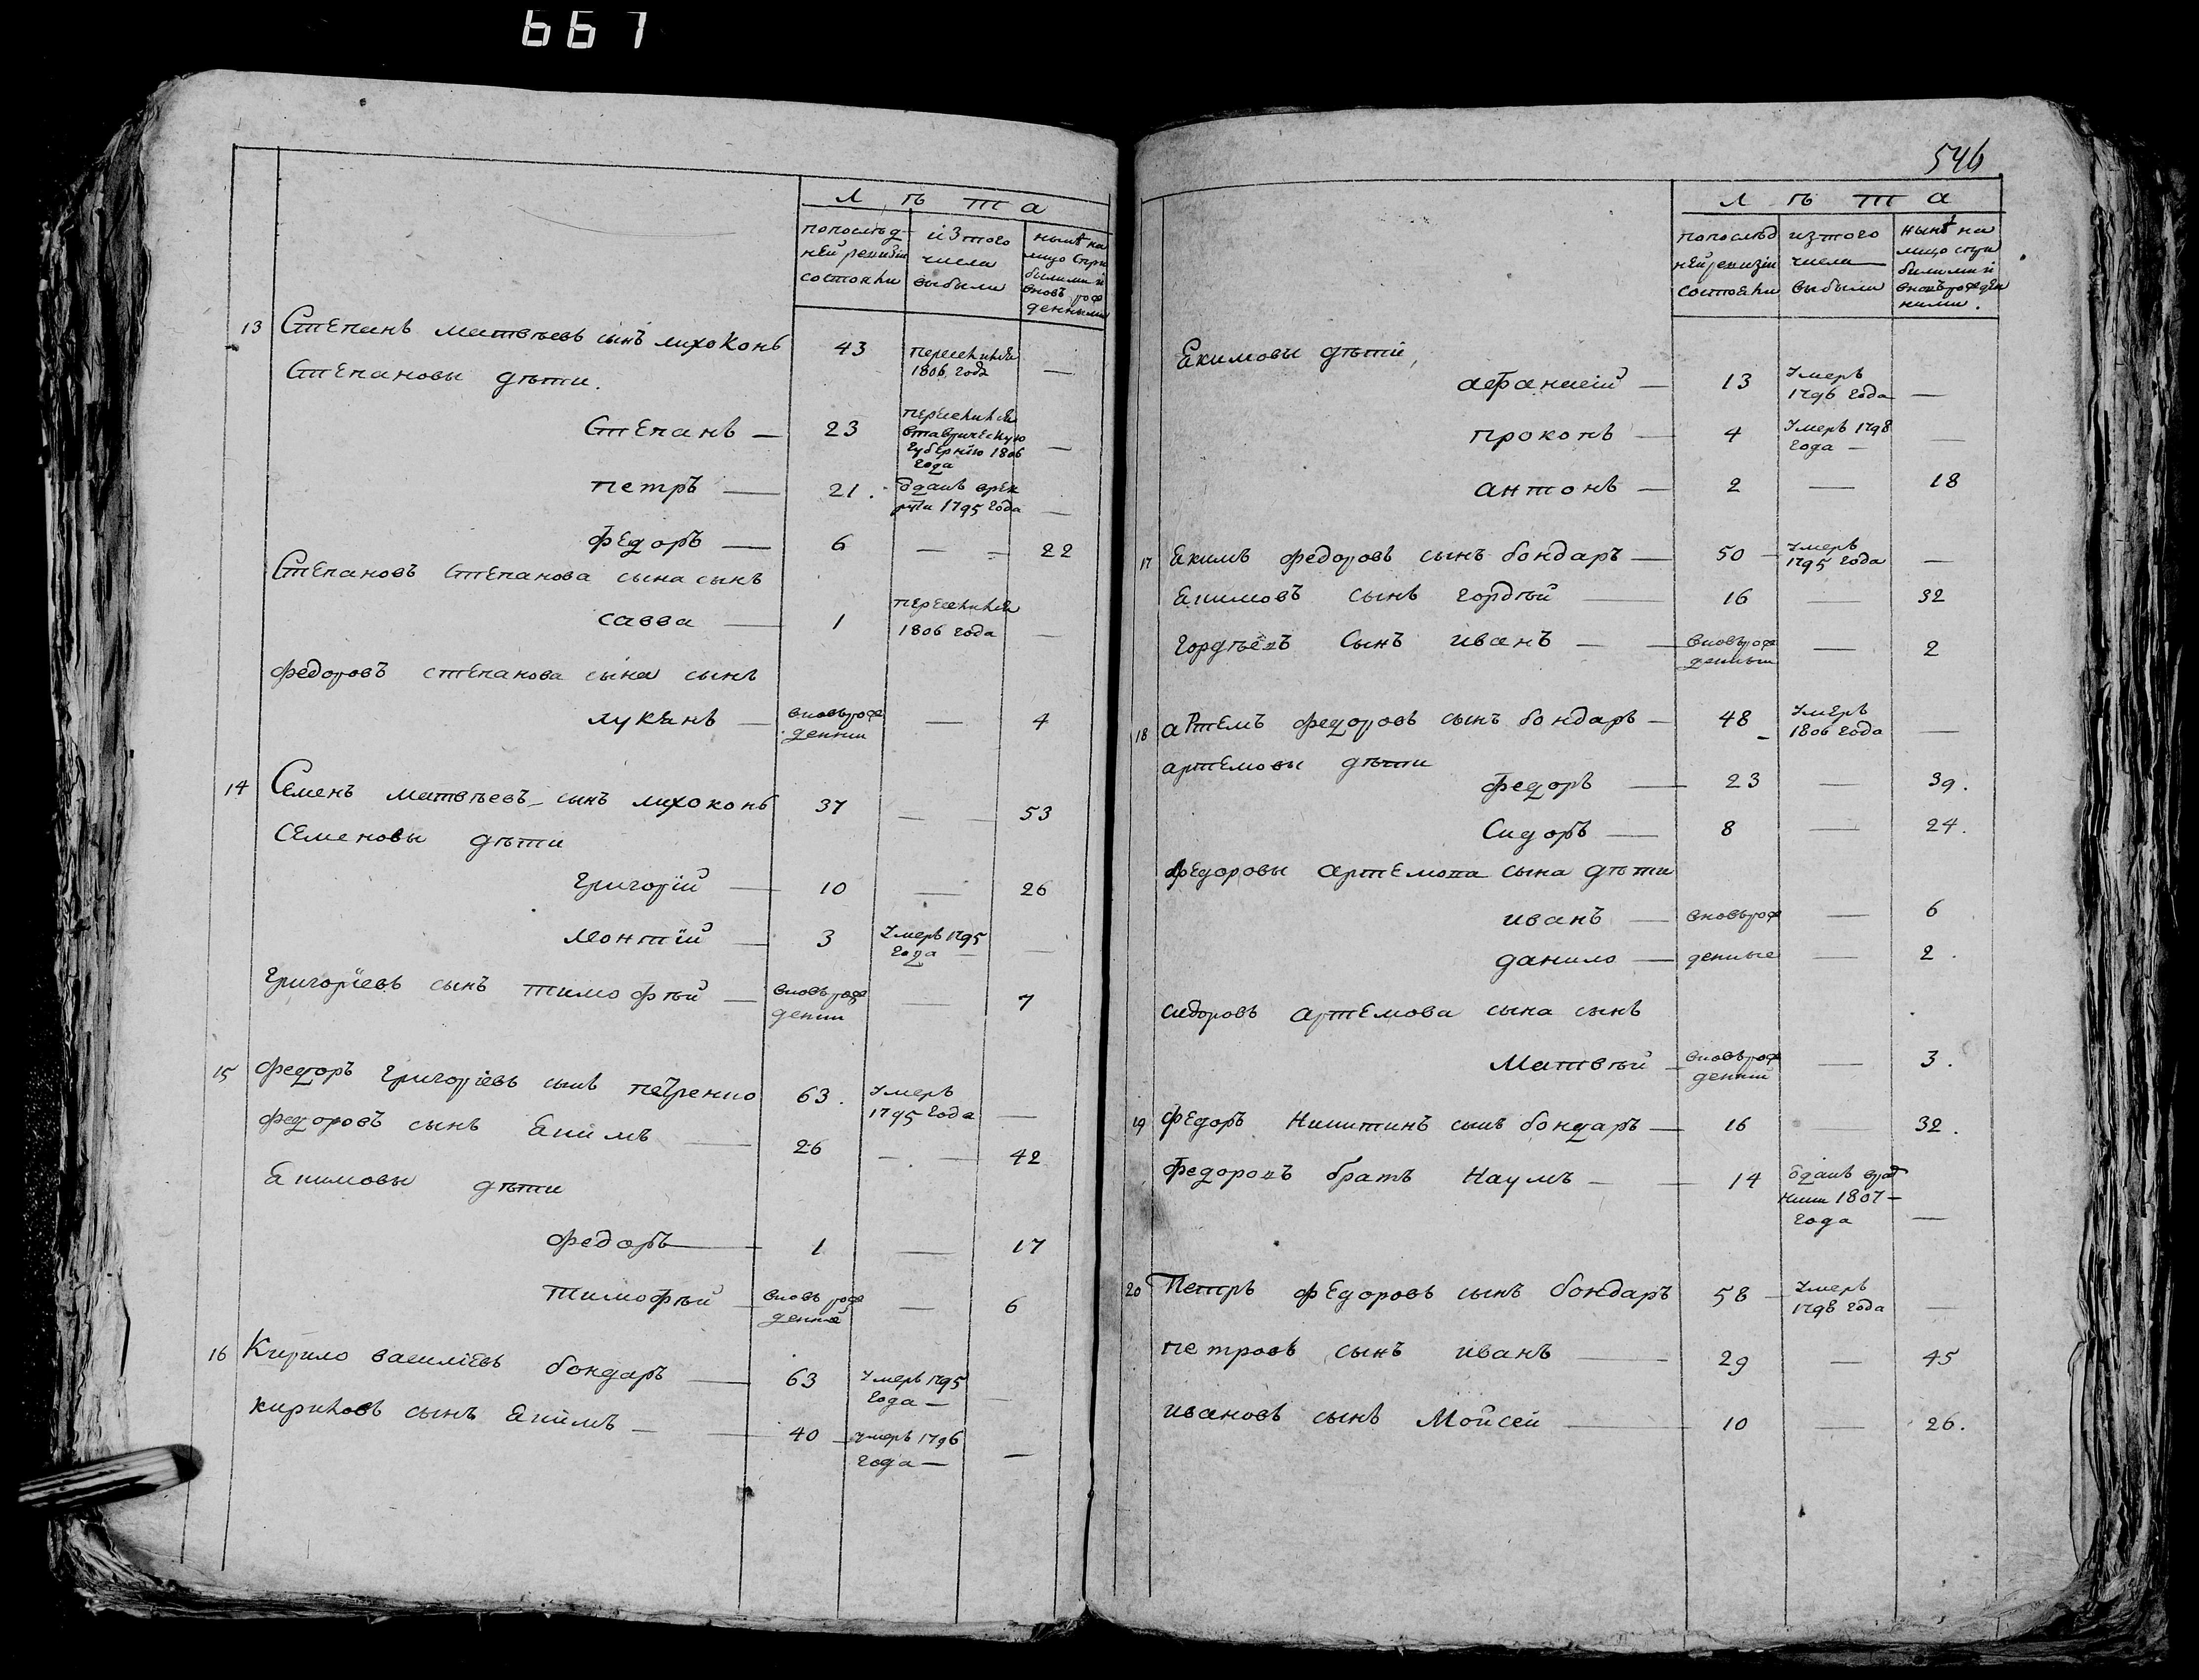 667
Л ѣ т а
по послѣд-
ней ревизіи
состояли
изъ того
числа
выбыли
нынѣ на
лицо с при
былыми и
вновь рож
денными
13 Степанъ матвѣевъ сынъ лихоконь 43 переселился —
1806 года
Степановы дѣти.
Степанъ — 23 переселился —
втаврическую
губернію 1806
года
петръ — 21. Одданъ врек —
руты 1795 года
федоръ — 6 — 22
Степановъ степанова сына сынъ
савва — 1 переселился —
1806 года
федоровъ степанова сына сынъ
лукянъ — вновьрож — 4
денны
14 Семенъ матвѣевъ сынъ лихоконь 37 — 53
Семеновы дѣти
григорій — 10 — 26
леонтій — 3 Умеръ 1795 —
года
григоріевъ сынъ тимофѣй — вновь рож — 7
денны
15 федоръ григоріевъ сынъ петренко 63. Умеръ —
1795 года
федоровъ сынъ Екимъ — 26 — 42
Екимовы дѣти
федоръ — 1 — 17
тимофѣй — вновь рож — 6
денны
16 Кирило василіевъ бондаръ — 63 Умеръ 1795 —
года —
кириловъ сынъ Екимъ — 40 умеръ 1796 —
года —
546
Л ѣ т а
по послѣд
ней ревизіи
состояли
изъ того
числа
выбыли
нынѣ на
лицо спри
былыми и
вновьрожден
ными.
Екимовы дѣти,
афанасій — 13 Умеръ —
1796 года
прокопъ — 4 Умеръ 1798 —
года —
антонъ — 2 — 18
17 Екимъ федоровъ сынъ бондаръ — 50 Умеръ —
1795 года
Екимовъ сынъ гордѣй — 16 — 32
гордѣевъ сынъ иванъ — вновьрож — 2
денным
18 артемъ федоровъ сынъ бондаръ — 48 Умеръ —
1806 года
артемовы дѣти
федоръ — 23 — 39.
Сидоръ — 8 — 24.
федоровы артемова сына дѣти
иванъ — вновьрож — 6
данило — денные — 2.
сидоровъ артемова сына сынъ
Матвѣй вновьрож — 3.
денный
19 федоръ Никитинъ сынъ бондаръ — 16 — 32.
федоровъ братъ Наумъ — 14 Одданъ —
1807 —
года
20 Петръ федоровъ сынъ бондаръ 58 — Умеръ —
1798 года
петровъ сынъ иванъ — 29 — 45
ивановъ сынъ Мойсей — 10 — 26.